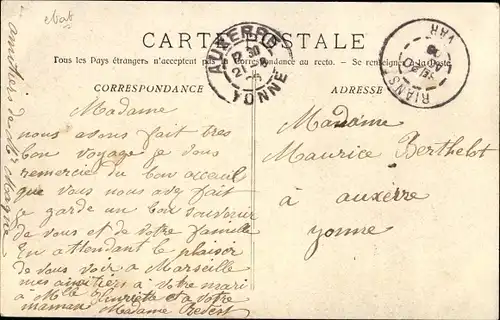 CARTE POSTALE
Tous les Pays étrangers n'acceptent pas la Correspondance au recto. Se renseigner à la Poste.
CORRESPONDANCE
Madame
nous avons fait tres
bon voyage je vous
remercie du bon acceuil
que vous nous avez fait
je garde un bon souvenir
de vous et de votre famille
En attendant le plaisir
de vous voir a Marseille
mes amitiers à votre mari
à Mlle Henriete et a votre
maman Madame
amitiers de Mr
ADRESSE
Madame
Maurice Berthelot
à auxerre
yonne
AUXERRE
YONNE
RIANS
VAR